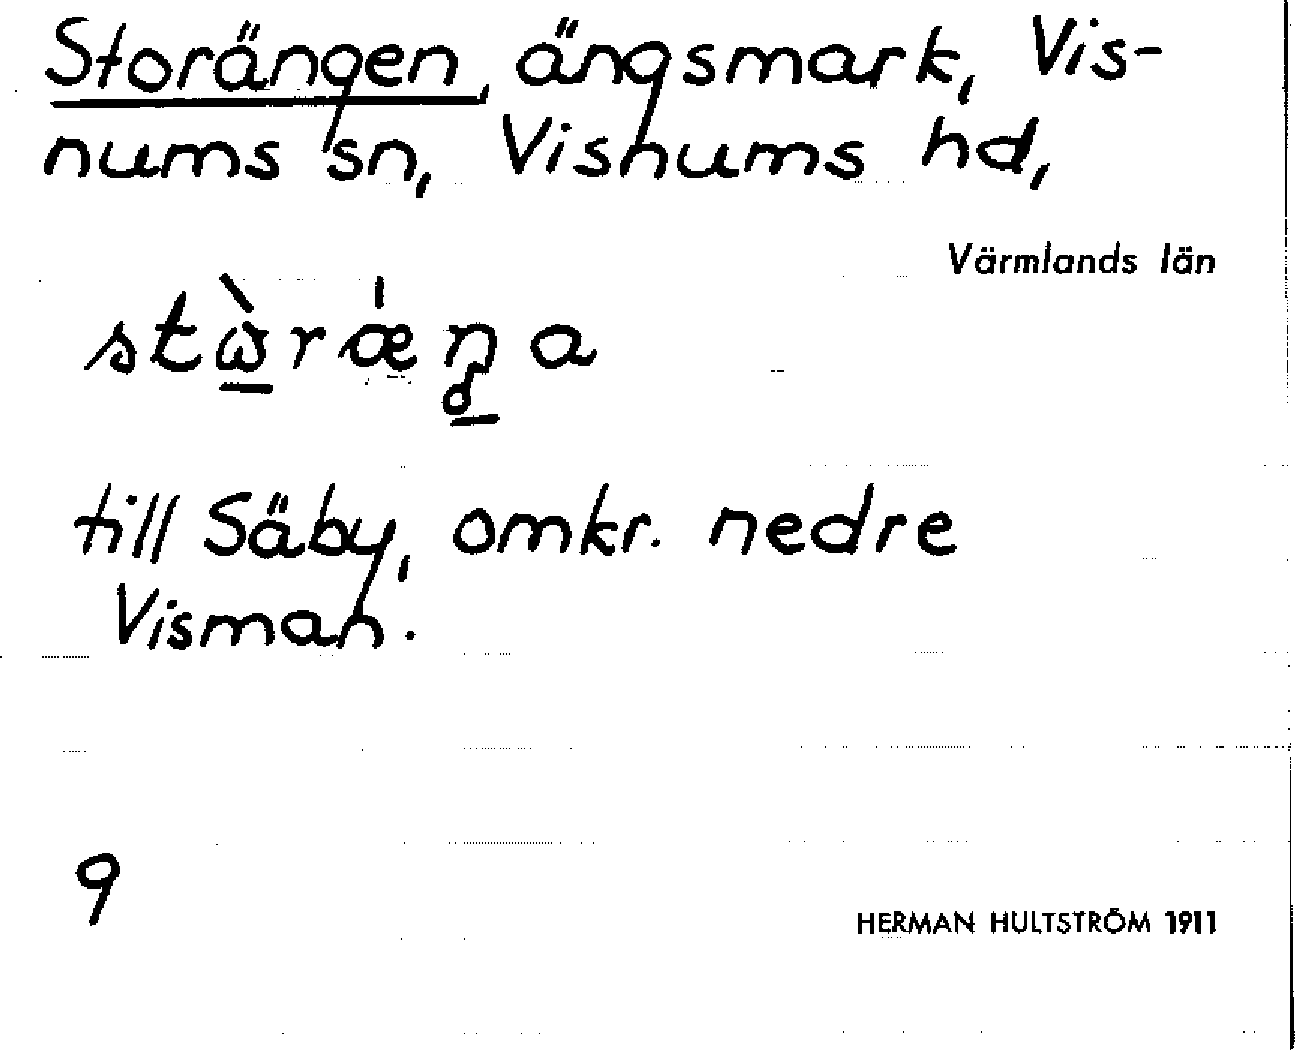 Storängen, ängsmark, Vis-
nums sn, Visnums hd,
Värmlands län
till Säby, omkr. nedre
Visman.
9
HERMAN HULTSTRÖM 1911